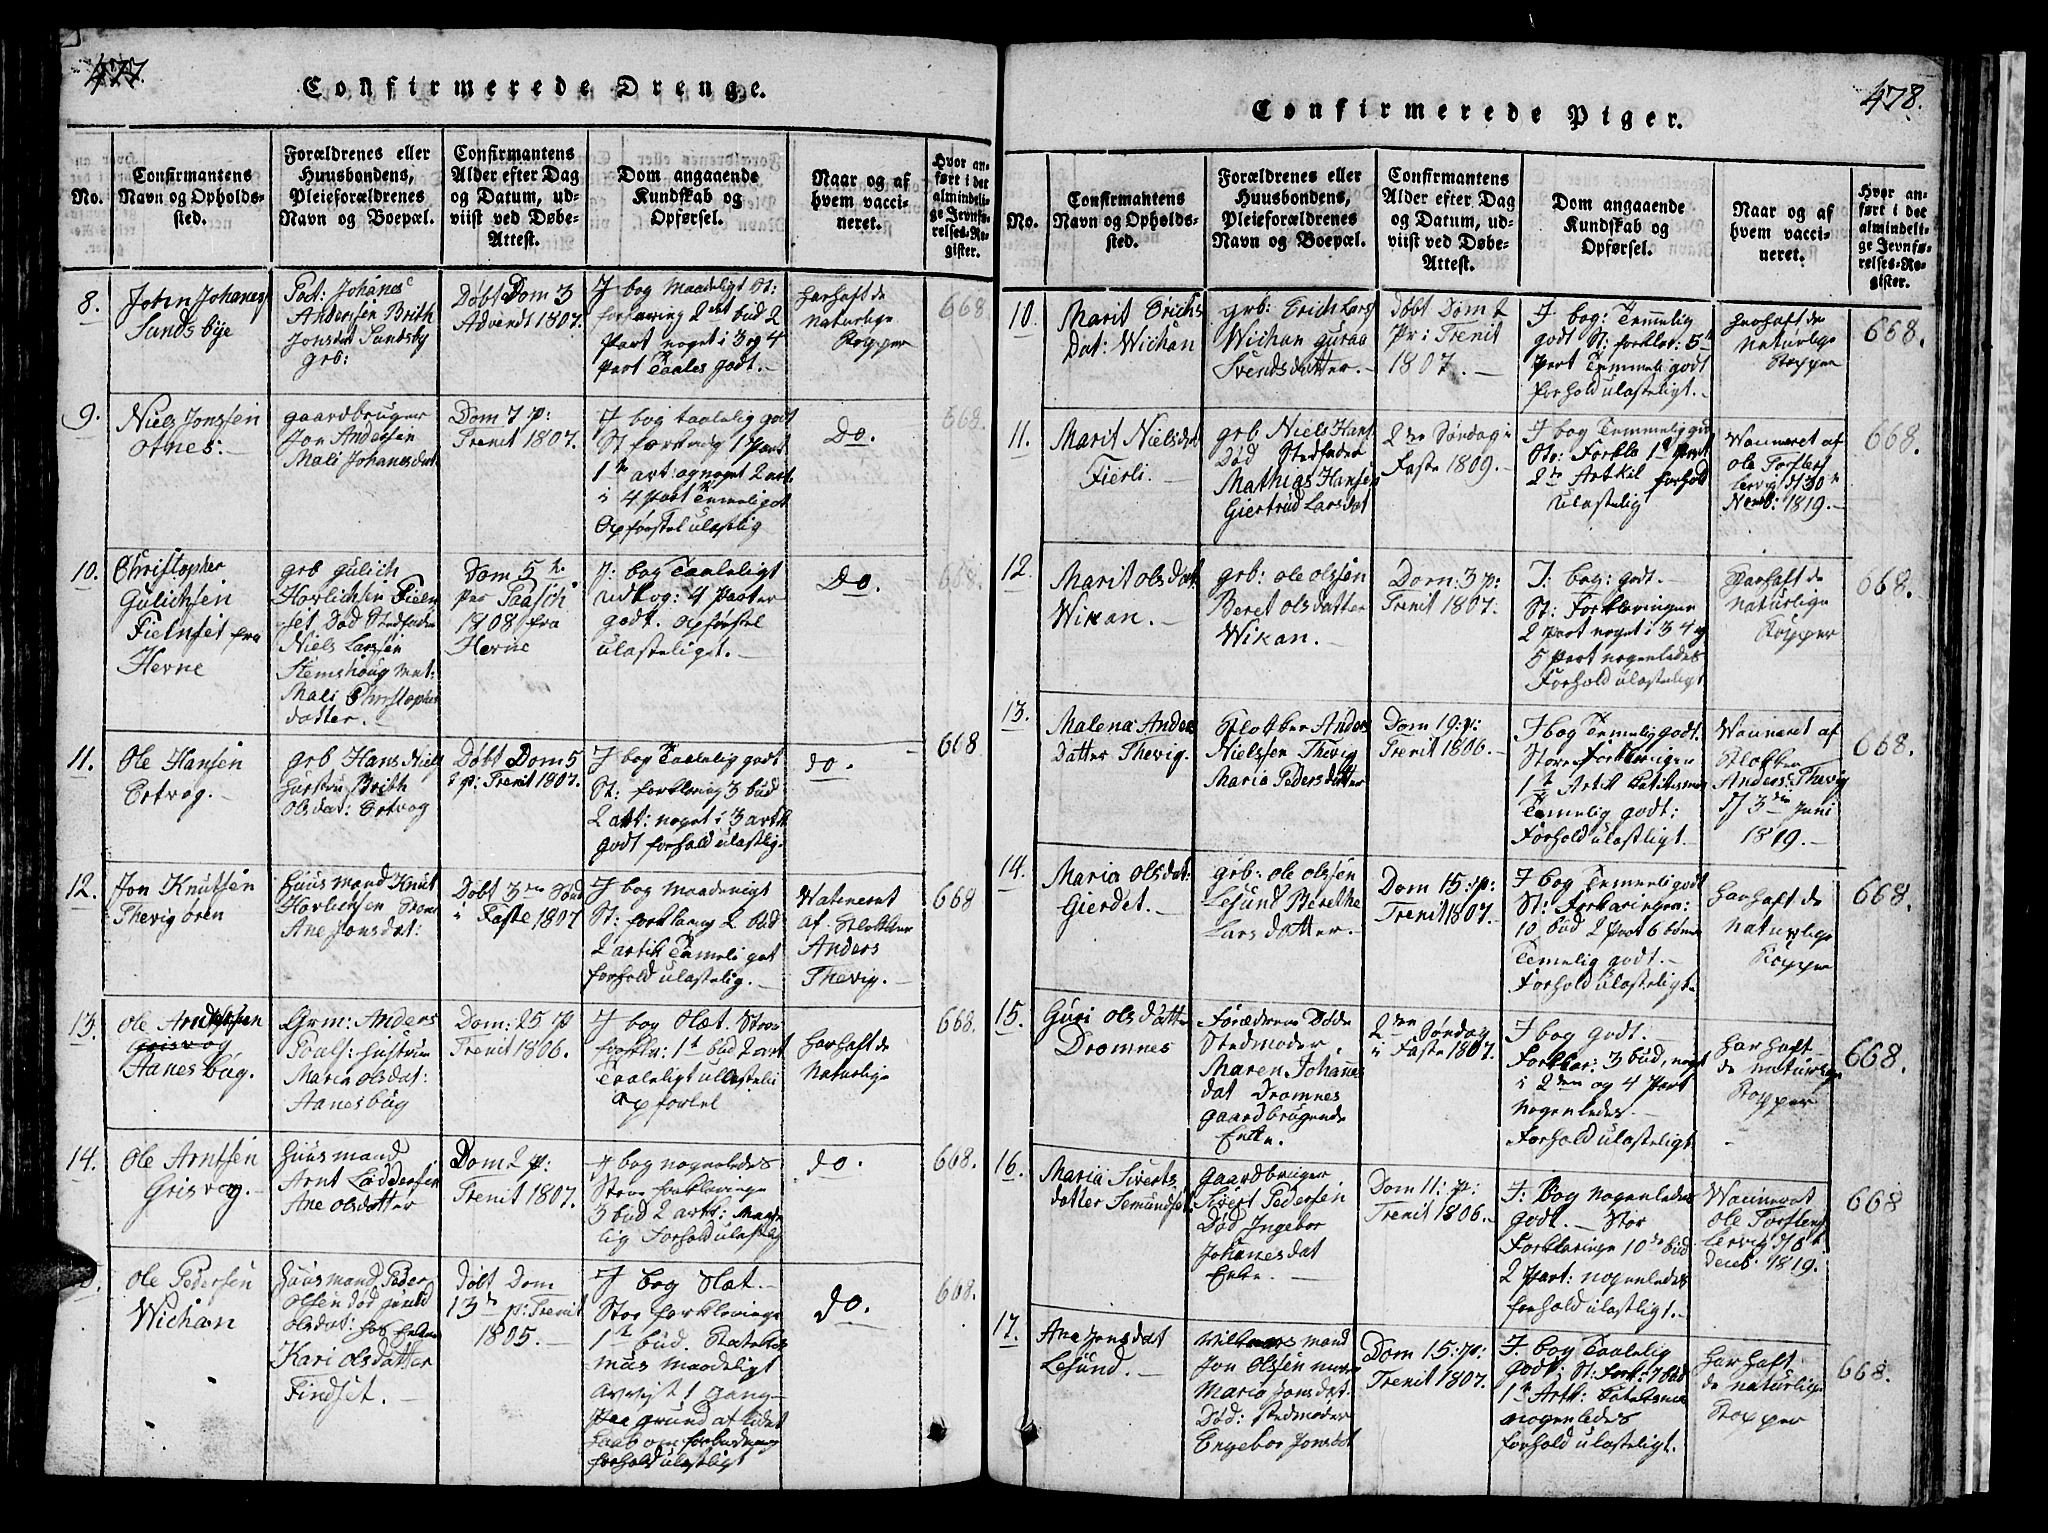 477.
Confirmerede Drenge.
No.
Confirmantens
Navn og Opholds-
sted.
Forældrenes eller
Huusbondens,
Pleieforældrenes
Navn og Boepæl.
Confirmantens
Alder efter Dag
og Datum, ud-
viist ved Døbe-
Attest.
Dom angaaende
Kundskab og
Opførsel.
Naar og af
hvem vacci-
neret.
Hvor an-
ført i det
almindeli-
ge Jevnfø-
relses-Re-
gister.
8.
John Johanes
Sundsbye
Johanes
Andersen Brith
Jonsdat Sundsby
grb:
Døbt Dom 3
Advendt 1807.
J bog maadeligt St:
forklaring 2det bud 2
Part noget i 3 og 4
Part Taales godt.
harhaft de
Naturlige
Kopper
668
9.
Niels Jonssen
Otnes.
gaardbruger
Jon Andersen
Mali Johanesdat
Dom 7 p:
Trenit 1807.
J bog taalelig godt
St forklring 1 Part
1te art: og noget 2 art.
i 4 Part Temeligodt
Opførstel ulastlig
Do.
668.
10.
Christopher
Gulichsen
Fielnset fra
Herne
grb gulich
Havlichsen Fieln
set Død Stedfader
Niels Larssen
Stemshoug
Mali Christophers
datter.
Dom 5te
Paasch
1808 fra
Herne
J: bog Taaleligt
udtog: 4 Parter
godt. Opførstel
ulasteligt.
Do.
668.
11.
Ole Hansen
Ertvog.
grb Hans Niels
hustru Brith
olsdat: Ertvog
Døbt Dom 5
p: Trenit 1807.
J bog Taalelig godt
St: forklaring 3 bud:
2 art: noget i 3 artk
godt forhold ulastlig.
do.
668
12.
Jon Knutsen
Thevig øren
huusmand Knut
Havlichsen
Ane Jonsdat:
Døbt 3die Sønd
i Faste 1807
J bog maadeligt
St: forklaring 2 bud
2 artik Temeli got
forhold ulastelig.
Vatineret
af Klokker
Anders
Thevig.
668
13.
Ole
Grisvog
Aanesbug.
Grm: Anders
Poals: hustrue
Maren olsdat:
Aanesbug
Dom: 25 p
Trenit 1806.
J bog Slæt. Stor
forklr: 1t bud 2 art
Taaleligt ulastelig
Opførtel
harhaft de
Naturlige
668.
14.
Ole Arntsen
Grisvog.
huusmand
Arnt Loddersen
Ane olsdatter
Dom 2 p:
Trenit 1807.
J bog nogenledes
Store forklaringe
3 bud 2 artk: Maade
lig Forhold ulastelig
do.
668.
Ole Pedersen
Wichan
huusmand Peder
Olsen død
olsdat: hos Enken
Kari olsdatter
Findset.
Døbt Dom
13de p: Trenit
1805.
J bog Slæt.
Stor forklaringe
1te bud. Katekis
mus maadeligt
avvist 1 gang
Paa grund af lidet
forhold ulasteligt
do.
668.
478.
Confirmerede Piger.
No.
Confirmantens
Navn og Opholds-
sted.
Forældrenes eller
Huusbondens,
Pleieforældrenes
Navn og Boepæl.
Confirmantens
Alder efter Dag
og Datum, ud-
viist ved Døbe-
Attest.
Dom angaaende
Kundskab og
Opførsel.
Naar og af
hvem vacci-
neret.
Hvor an-
ført i det
almindeli-
ge Jevnfø-
relses-Re-
gister.
10.
Marit Erichs
Dat: Wichan
grb: Erich Lars
Wichan guraa
Svendsdatter.
Døbt Dom 2
Pr: Trenit
1807.
J bog: Temmelig
godt St: forklar: 5te
Part Temmeli godt
forhold ulasteligt.
harhaft de
Naturlige
Kopper
668.
11.
Marit Nielsdat
Fierli.
grb Niels Hans
Død Stedfader
Mathias Hansen
Giertrud Larsdat
2den Søndag i
Faste 1809.
J bog Temmelig
Sto: Forkla 1e Part
2den Artkil forhold
Ulastelig
Waineret af
Ole Torstens
Lervig d 30te
Novb: 1819.
668.
12.
Marit olsdat
Wikan.
grb: ole olssen
Beret olsdatter
Wikan.
Dom: 3 p:
Trenit 1807.
J: bog: godt.
St: Forklaringer
2 Part noget i 3 4 og
5 Part nogenledes
Forhold ulasteligt
Harhaft de
Naturlige
Kopper
668.
13.
Malena Anders
datter Thevig.
Klokker Anders
Nielssen Thevig
Maria Pedersdatter
Dom 19: p:
Trenit 1806.
J bog Temelig godt.
Store Forklaringen
1te Artik
Temelig godt:
Forhold ulasteligt.
Wauneret af
Klokker
Anders: Thevig
d 3die Juni
1819.
668.
14.
Maria olsdat:
Gierdet.
grb: ole olssen
Lesund Berethe
Larsdatter.
Dom 15: p:
Trenit 1807.
J bog Temmeli godt
St: Forklaringen:
10 bud 2 Part 6 bønn
Temelig godt.
Forhold ulasteligt.
harhaft de
Naturlige
Kopper
668.
15.
Guri olsdatter
Dromnes
Forældrene Døde
Stedmoder
Maren Johanes
dat Dromnes
gaardbrugende
Enke.
2den Søndag
i Faste 1807.
J bog godt.
Forklar: 3 bud, noget
i 2den og 4 Part
Nogenledes.
Forhold ulasteligt
harhaft
de naturlige
Kopper
668.
16.
Maria Siverts
datter Semundset.
gaardbruger
Sivert Pedersen
Død Ingebor
Johanesdat
Enke.
Dom 11: p:
Trenit 1806.
J: bog Nogenledes
godt. Stor
Forklaringe 10de bud
2 Part: nogenledes
forhold ulasteligt.
Wauneret
Ole Torstens
Lervig d 6te
Decb: 1819.
668
17.
Ane Jonsdat
Lesund.
mand
Jon olssen
Maria Jonsdat:
Død: Stedmoder
Engebor Jonsdat
Dom 15: p:
Trenit 1807.
J: bog Taalelig
godt, St: Fork: 7 bud
1te Artk:
nogenledes
forhold ulasteligt.
harhaft
de naturlige
Kopper
668.